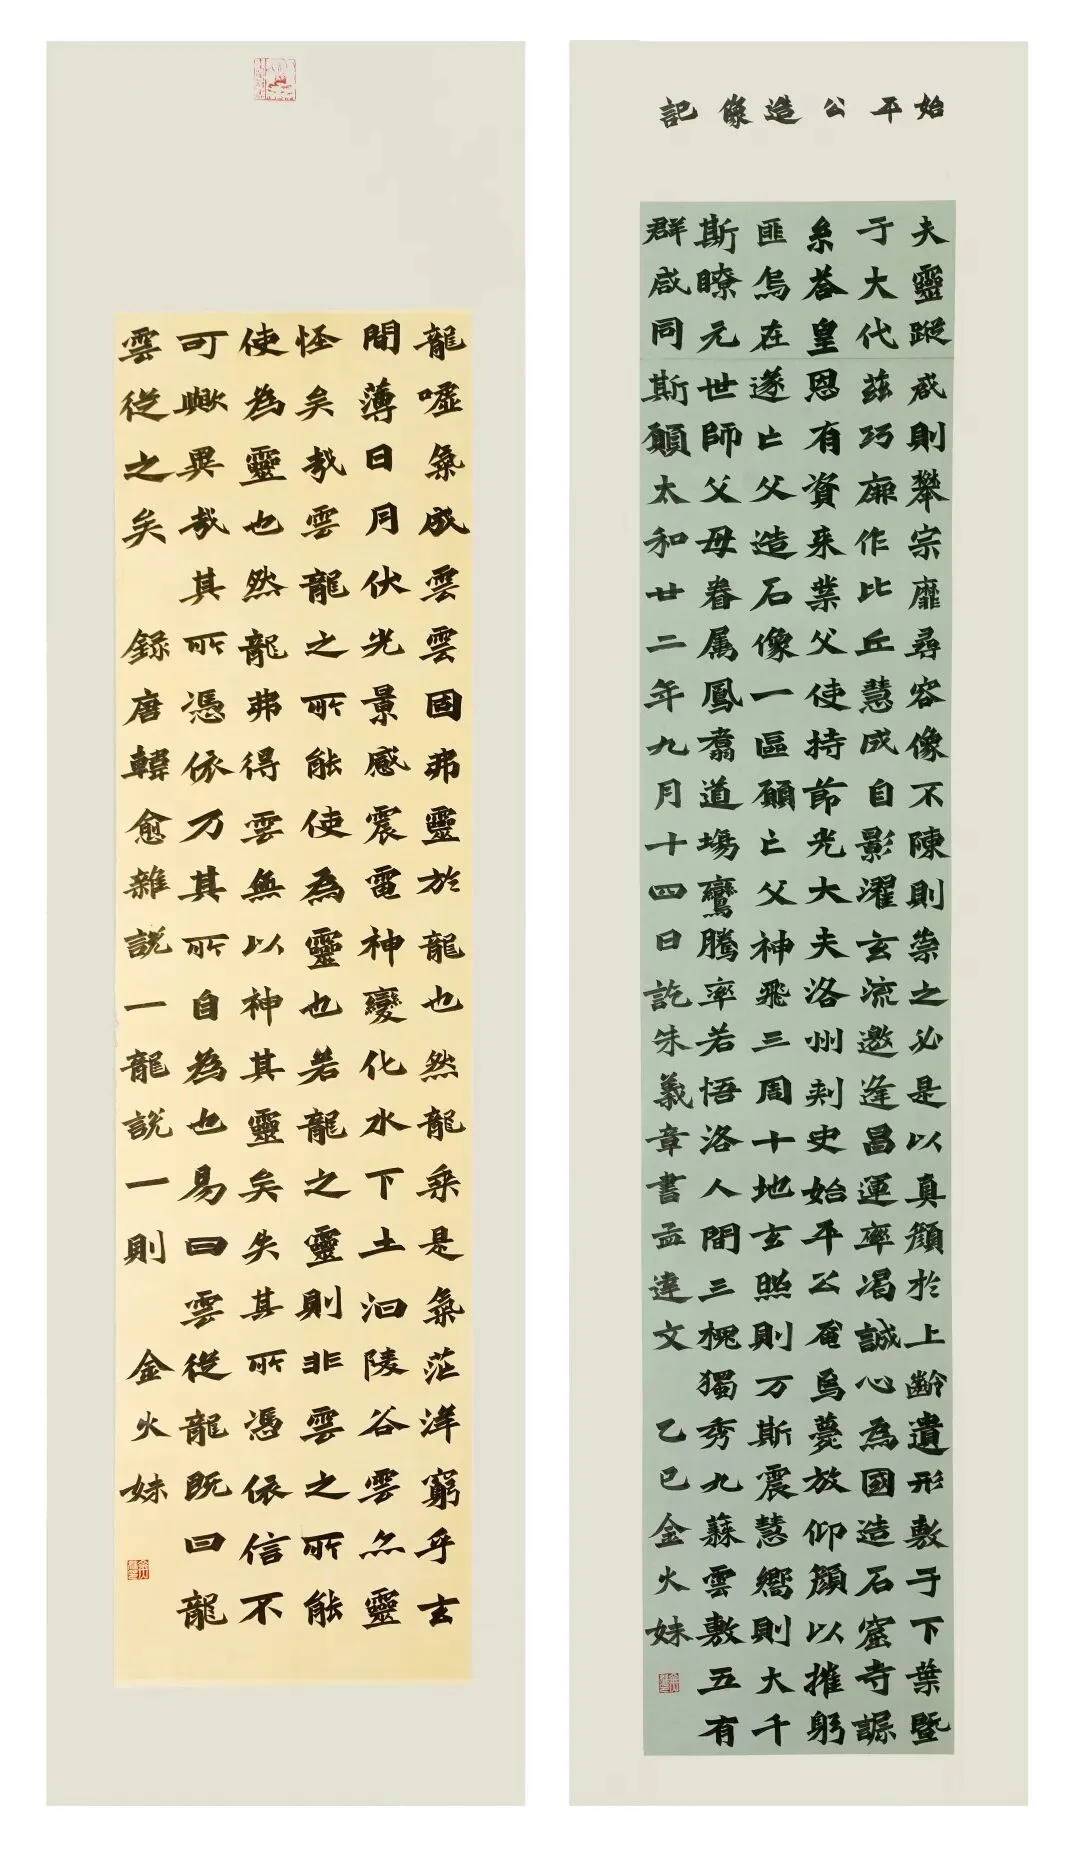 始平公造像記
夫靈蹤咸則攀宗靡尋容像不陳則崇之必是以真顔於上齡遺形敷于下葉暨
于大代茲功厥作比丘慧成自影濯玄流邀逢昌運率渴誠心為國造石窟寺誳
糸荅皇恩有資来業父使持節光大夫洛州刺史始平公奄焉薨放仰顔以摧躬
匪烏在遂亡父造石像一區願亡父神飛三周十地玄照則万斯震慧嚮則大千
斯瞭元世師父母眷属鳳翥道場鸞騰率若悟洛人間三槐獨秀九蕀雲敷五有
群咸同斯願太和廿二年九月十四日訖朱義章書孟達文 乙巳金火妹
龍嘘氣成雲雲固弗靈於龍也然龍乘是氣茫洋窮乎玄
間薄日月伏光景感震雷神變化水下土汩陵谷雲亦靈
怪矣哉雲龍之所能使為靈也若龍之靈則非雲之所能
使為靈也然龍弗得雲無以神其靈矣失其所憑依信不
可歟異哉其所憑依乃其所自為也易曰雲從龍既曰龍
雲從之矣 録唐韓愈雜説一龍説一則 金火妹